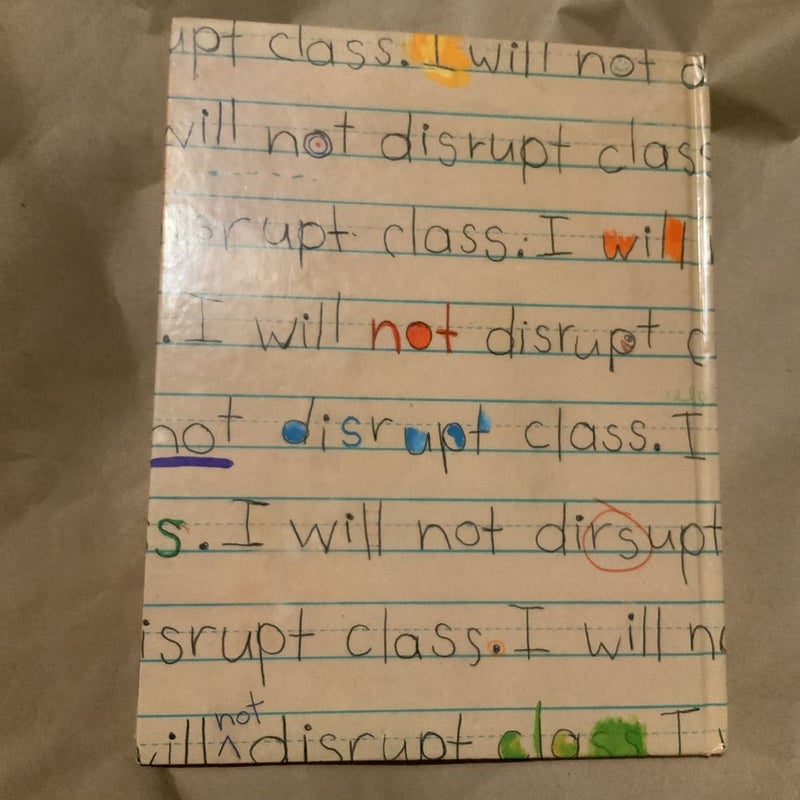 upt class. I will not d
will not disrupt class
srupt class. I will
. I will not disrupt c
not disrupt class. I
s. I will not dirsupt
isrupt class. I will no
will not disrupt class I w